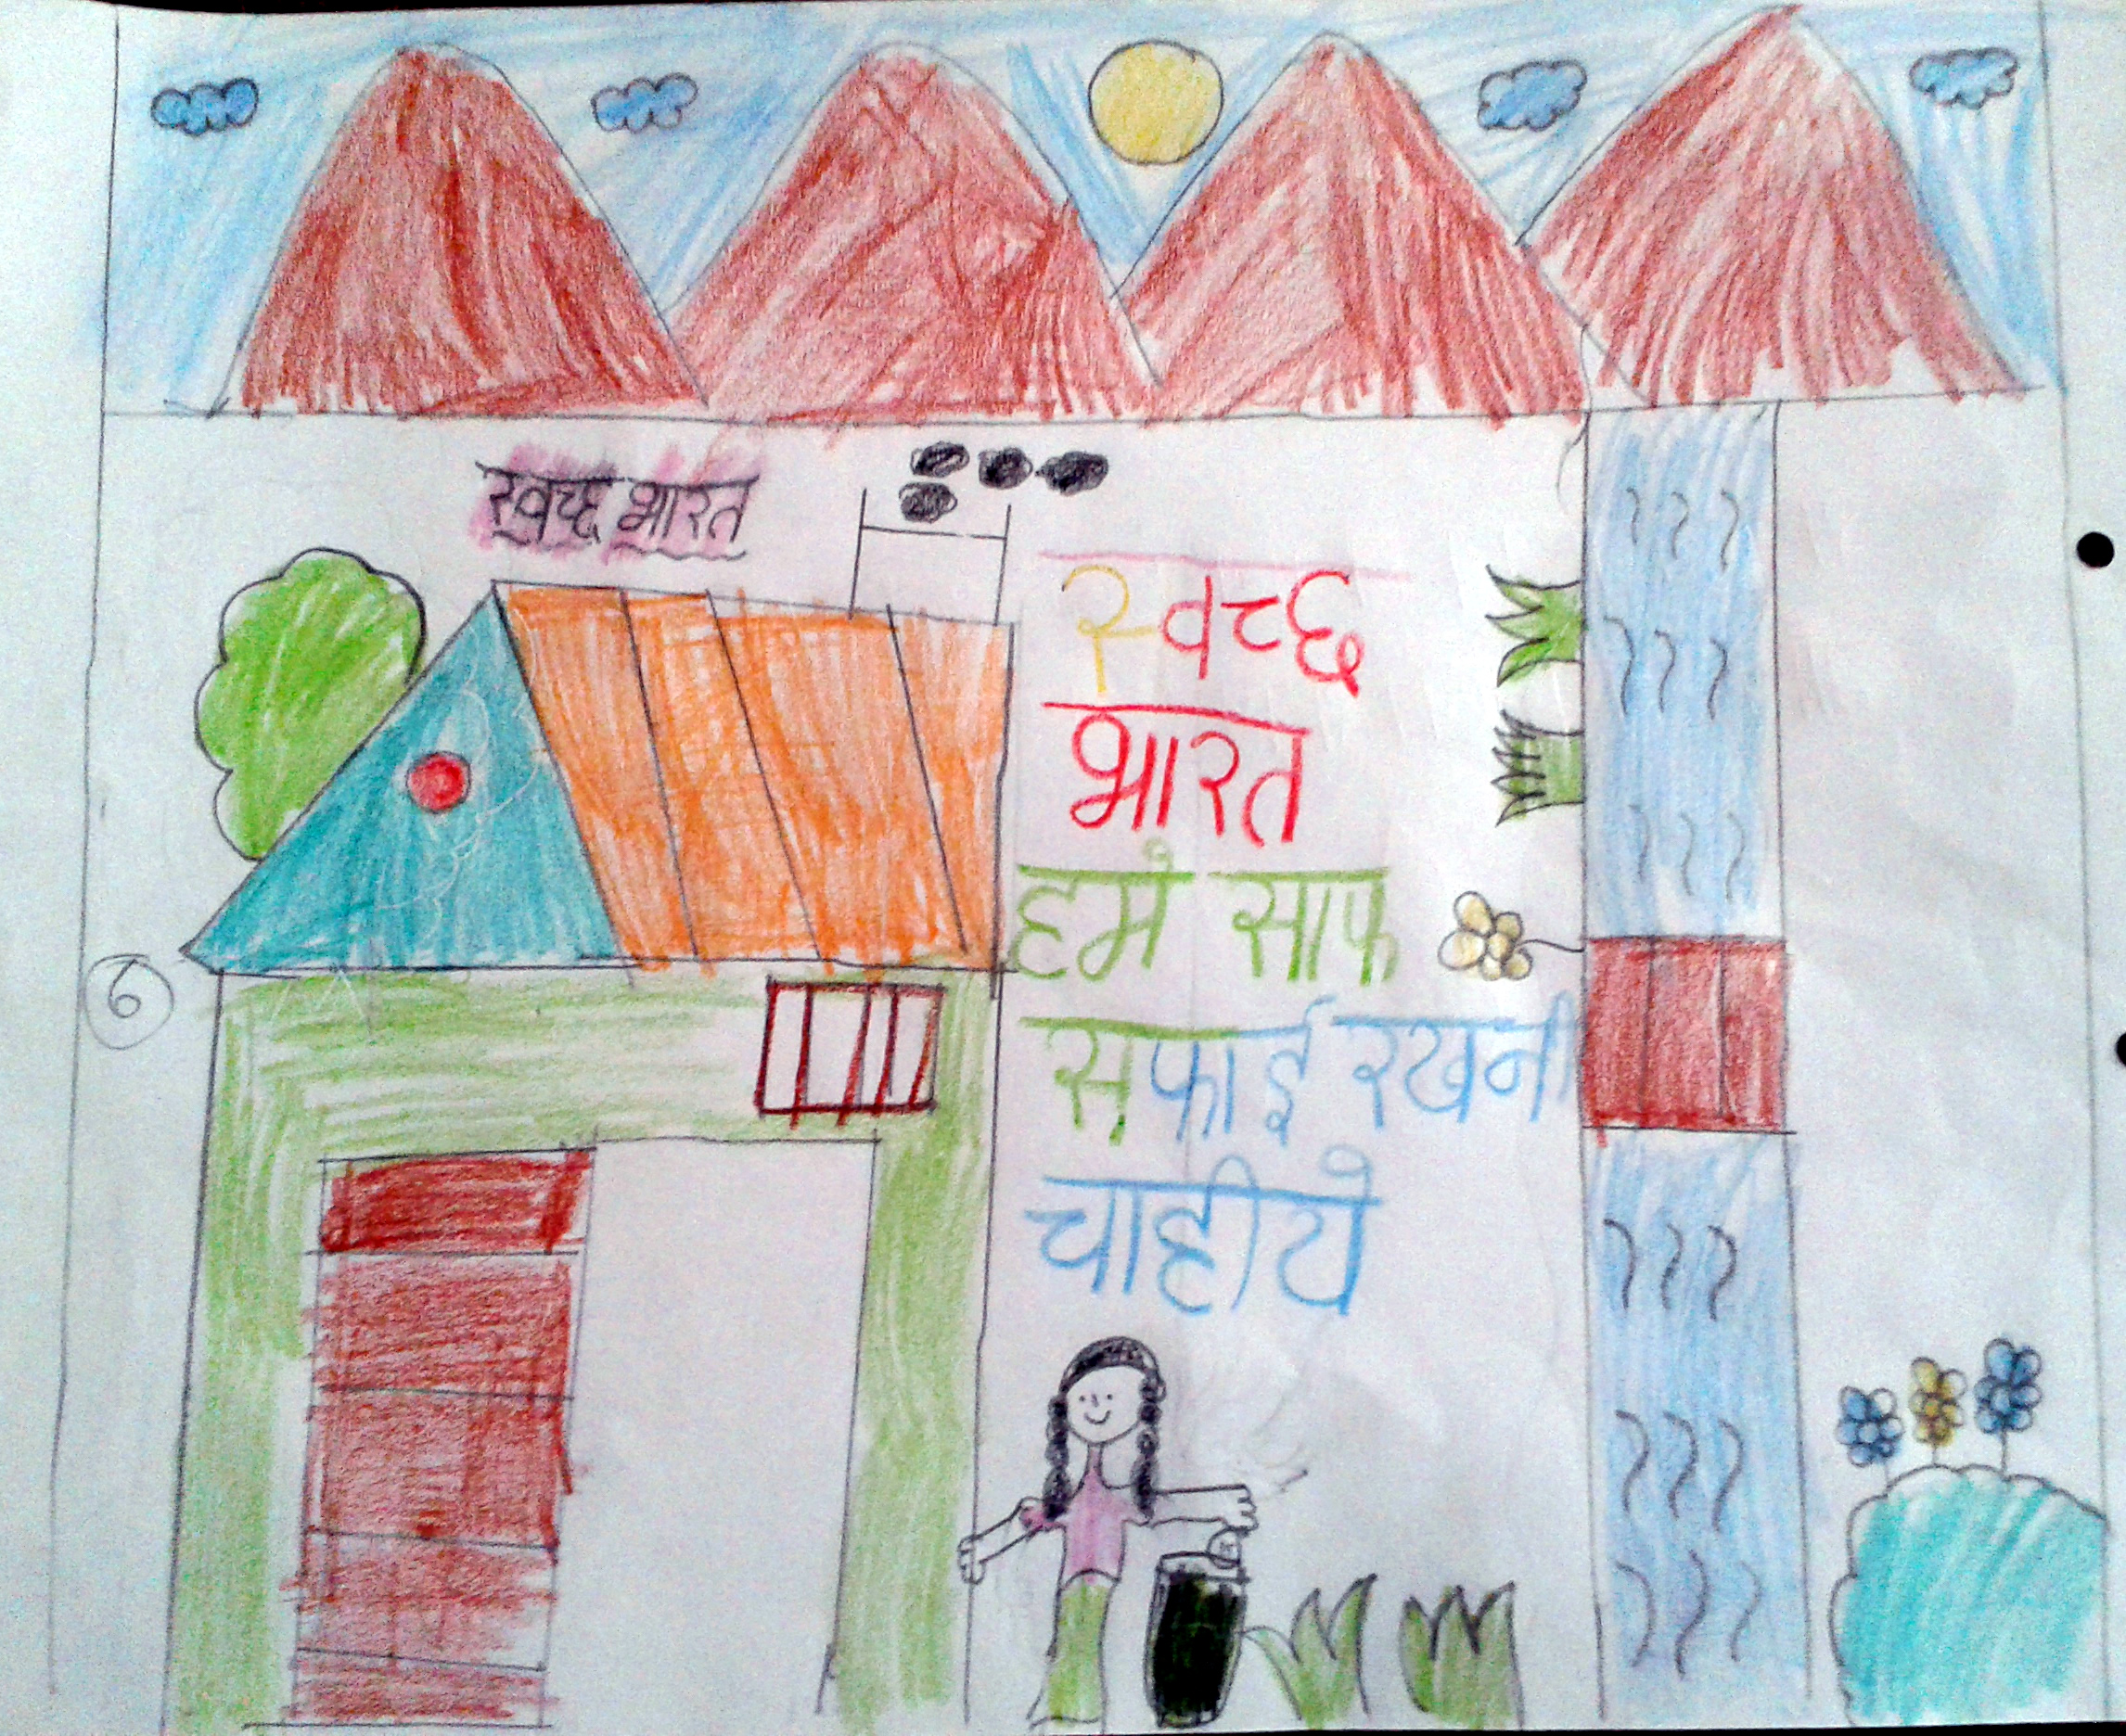 स्वच्छ भारत
स्वच्छ
भारत
हमे साफ
सफाई रखनी
चाहीये
6